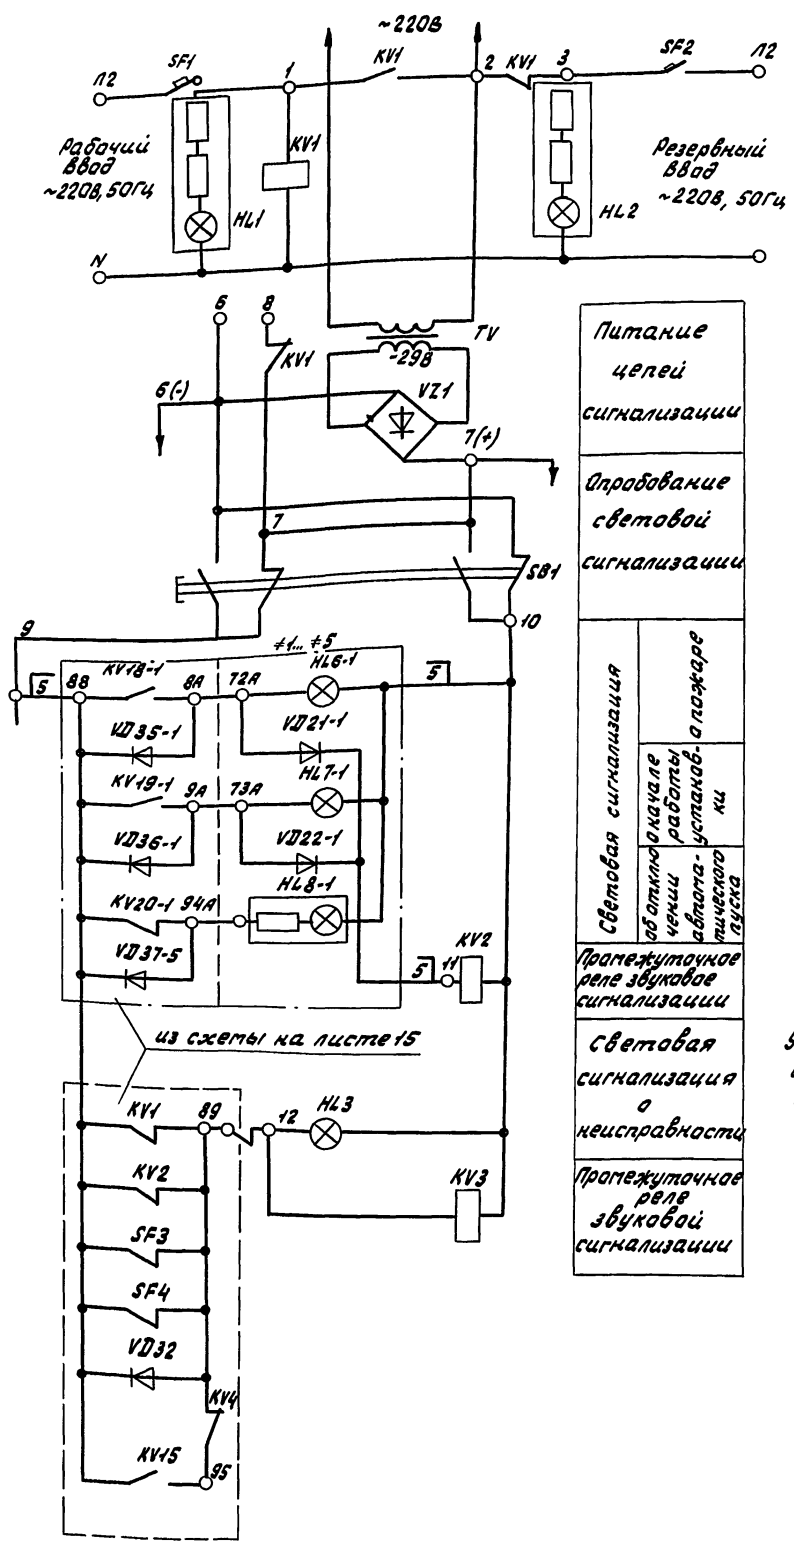 ~220В
SF1
КV1
2
КV1
3
SF2
Л2
1
Л2
Рабочий
ввод
~220В, 50Гц
HL1
КV1
HL2
Резервный
ввод
~220В, 50Гц
N
6
8
TV
КV1
~29В
VZ1
6(-)
7(+)
7
SB1
10
9
≠1... ≠5
5
88
КV18-1
8А
72А
HL6-1
5
VD35-1
VD21-1
КV19-1
9А
73А
HL7-1
VD36-1
VD22-1
КV20-1
94А
HL8-1
VD37-5
5
11
КV2
из схемы на листе 15
КV1
89
12
HL3
КV2
КV3
SF3
SF4
VD32
КV4
КV15
95
Питание
цепей
сигнализации
Опробование
световой
сигнализации
Световая сигнализация
о пожаре
о начале
работы
установ-
ки
об отклю
чении
автома-
тического
пуска
Промежуточное
реле звуковое
сигнализации
Световая
сигнализация
о
неисправности
Промежуточное
реле
звуковой
сигнализации